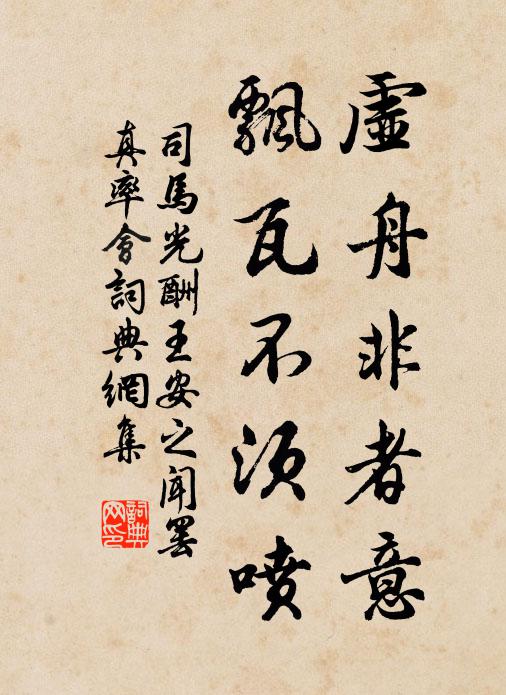 虛舟非者意
飄瓦不須噴
司馬光酬王安之聞罢
真率會詞典網集
詞典
网印